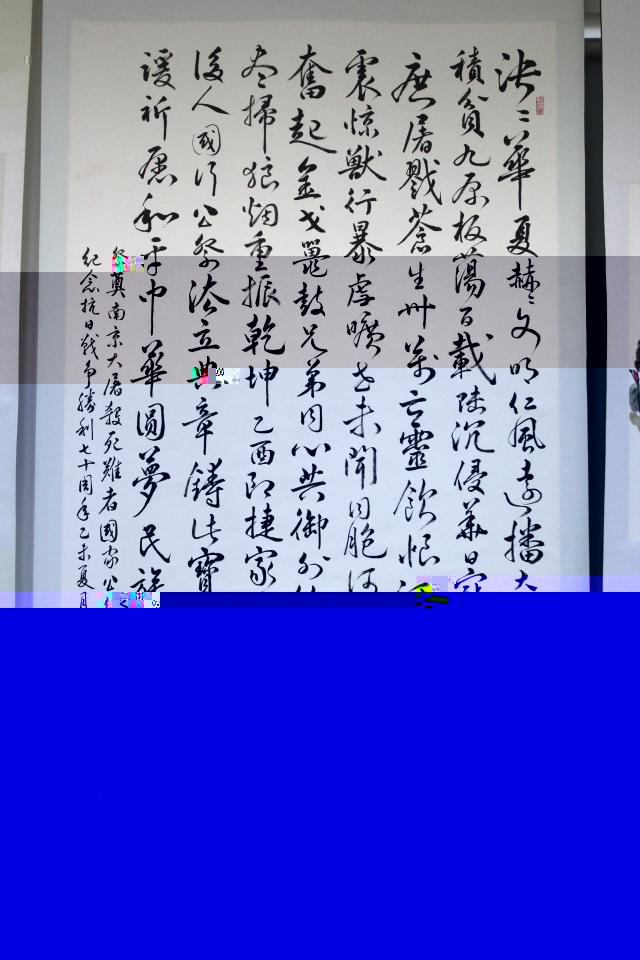 泱〻華夏赫〻文明仁風遠播大
積貧九原板蕩百載陸沉侵華日寇
庶屠戮蒼生卅萬亡靈飲恨
震惊獸行暴虐曠世未聞同胞
奮起金戈鼉鼓兄弟同心共御外
盡掃狼烟重振乾坤乙酉即捷家
後人國行公祭法立典章鑄此寶
諼祈愿和平中華圓夢民族
祭奠南京大屠殺死難者國家公
紀念抗日戰爭勝利七十周年乙未夏月